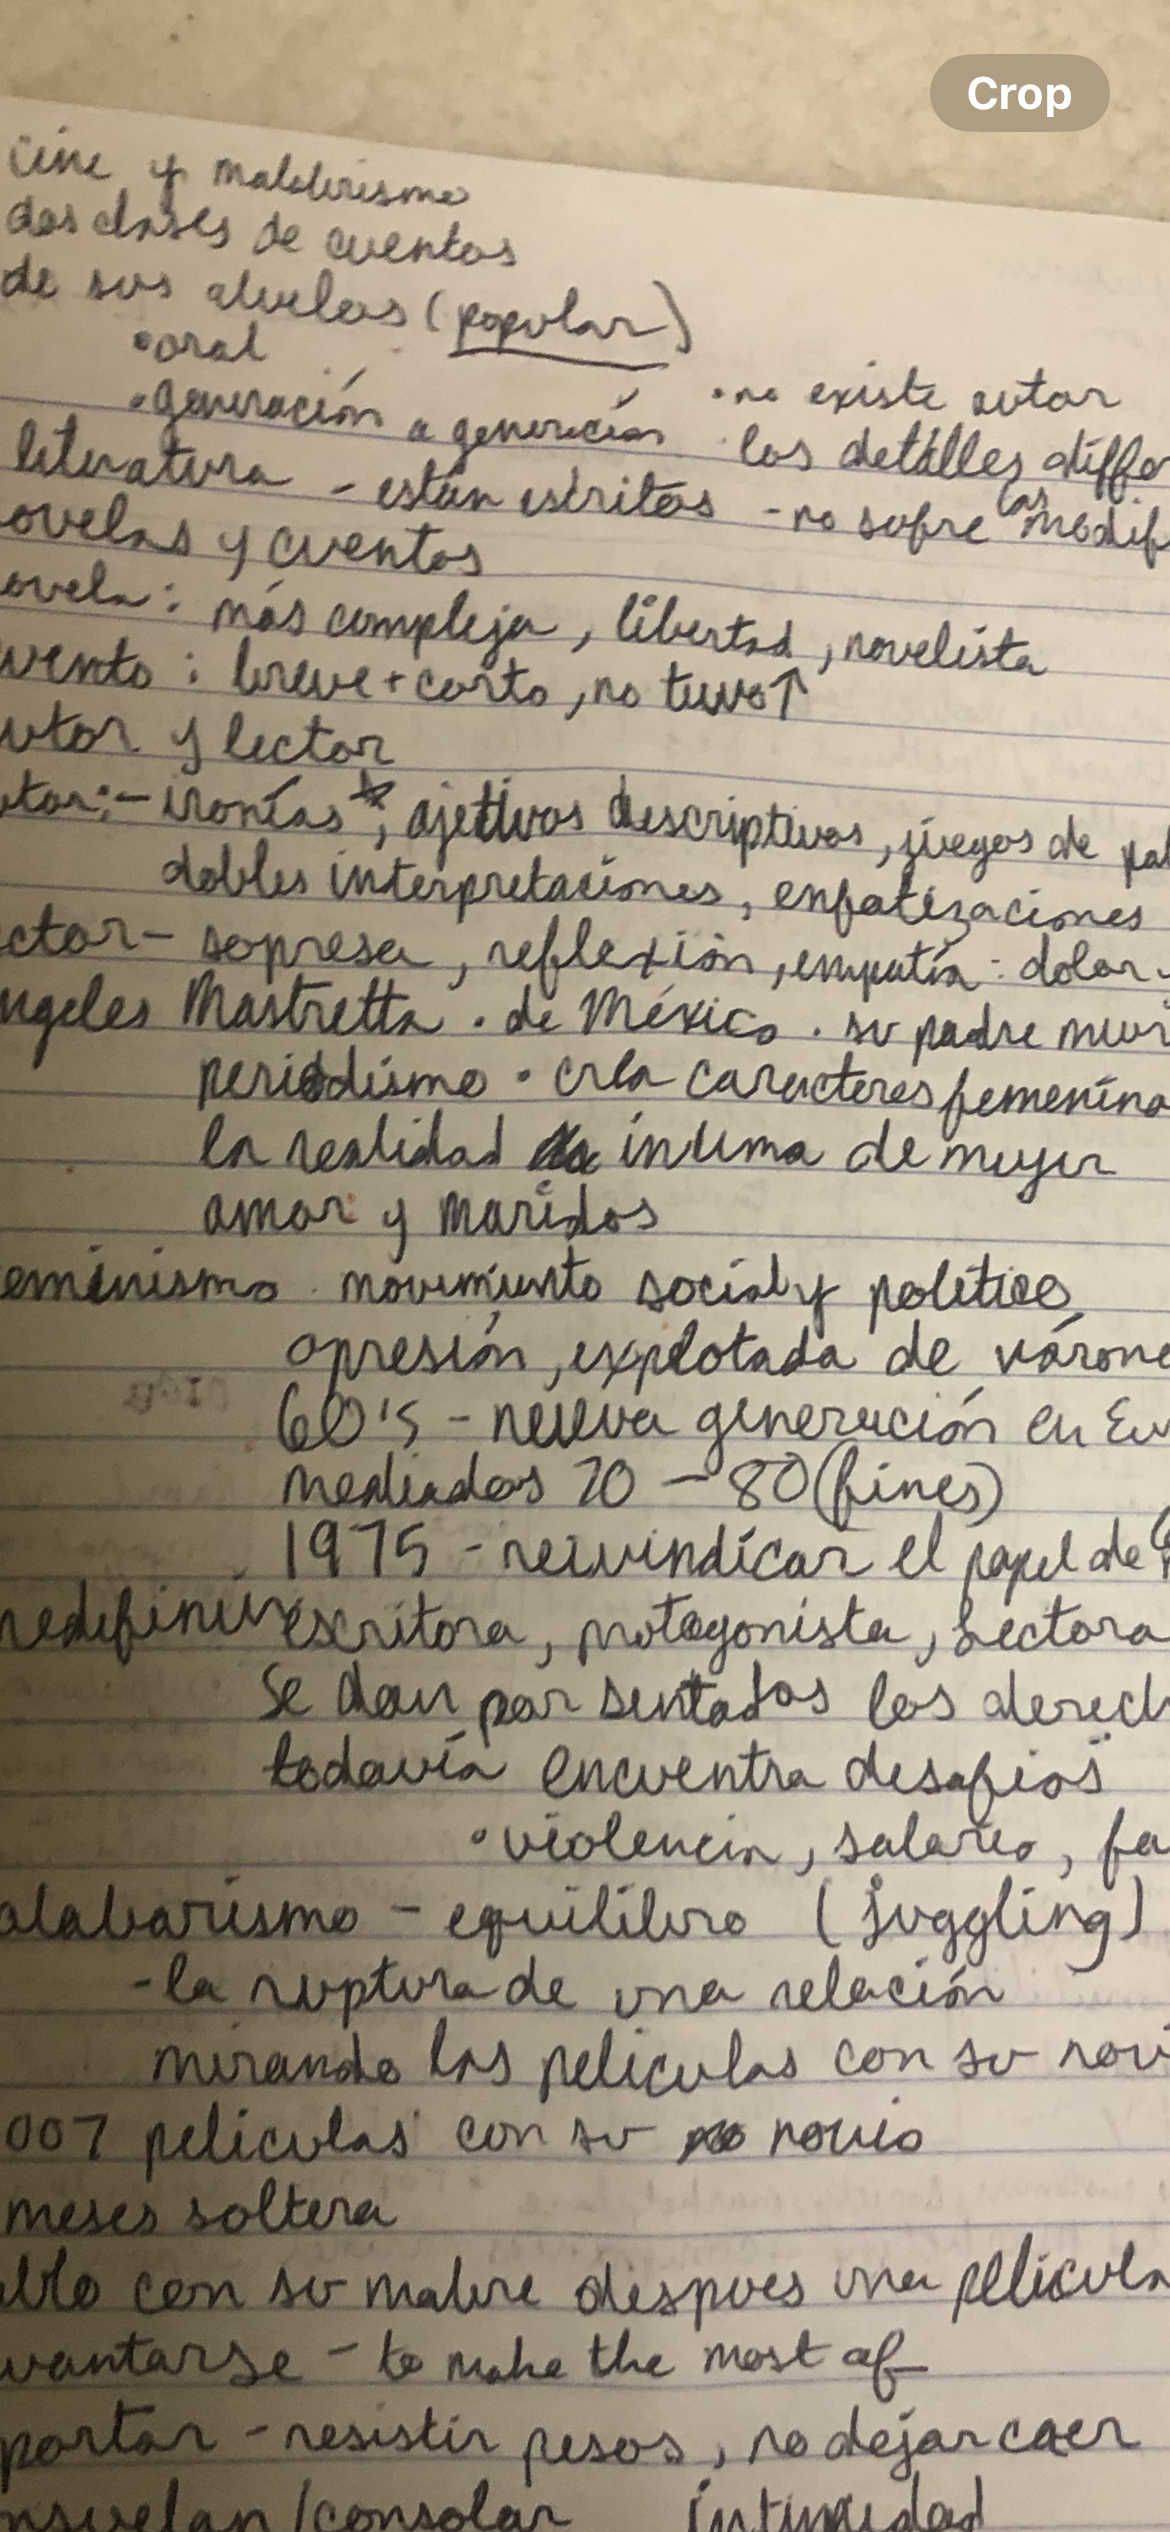 Crop
cine y malabrismo
dos clases de cuentos
de sus abuelas (popular)
•oral
•no existe autor
•generación a generación
los detalles differ
literatura - están escritos - no sufre las modif
ovelas y cuentos
ovela: más compleja, libertad, novelista
uento: breve + corto, no tuvo ↑
utor y lector
utor: - ironías*, ajetivos descriptivos, juegos de pal
dobles interpretaciones, enfatizaciones
ctor - sopresa, reflexión, empatía: dolor
ngeles Mastretta . de México . su padre mur
periodismo • crea caracteres femenina
la realidad íntima de mujer
amor y maridos
eminismo . movimiento social y politico
opresión, explotada de várone
60's - nueva generación en Eu
mediados 70 - 80 (fines)
1975 - reivindicar el papel de
redefinir escritora, protagonista, lectora
se dan por sentados los derech
todavía encuentra desafios
•violencia, salario, fa
alabarismo - equilibro (juggling)
-la ruptura de una relación
mirando las peliculas con su novi
007 peliculas con su novio
meses soltera
con su madre despues una pelicula
vantarse - to make the most of
portar - resistir pesos, no dejar caer
nsuelan/consolar intimidad